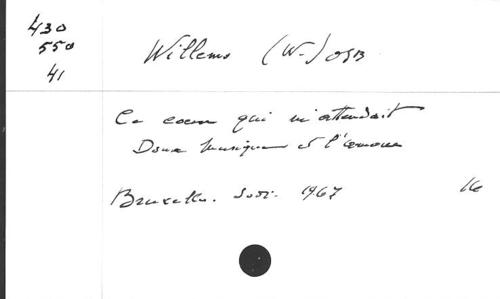 430
550
41
Willems (W.) OSB
Ce coeur qui m'attendait
Doux musique et l'amour
Bruxelles. Sodi. 1967 16